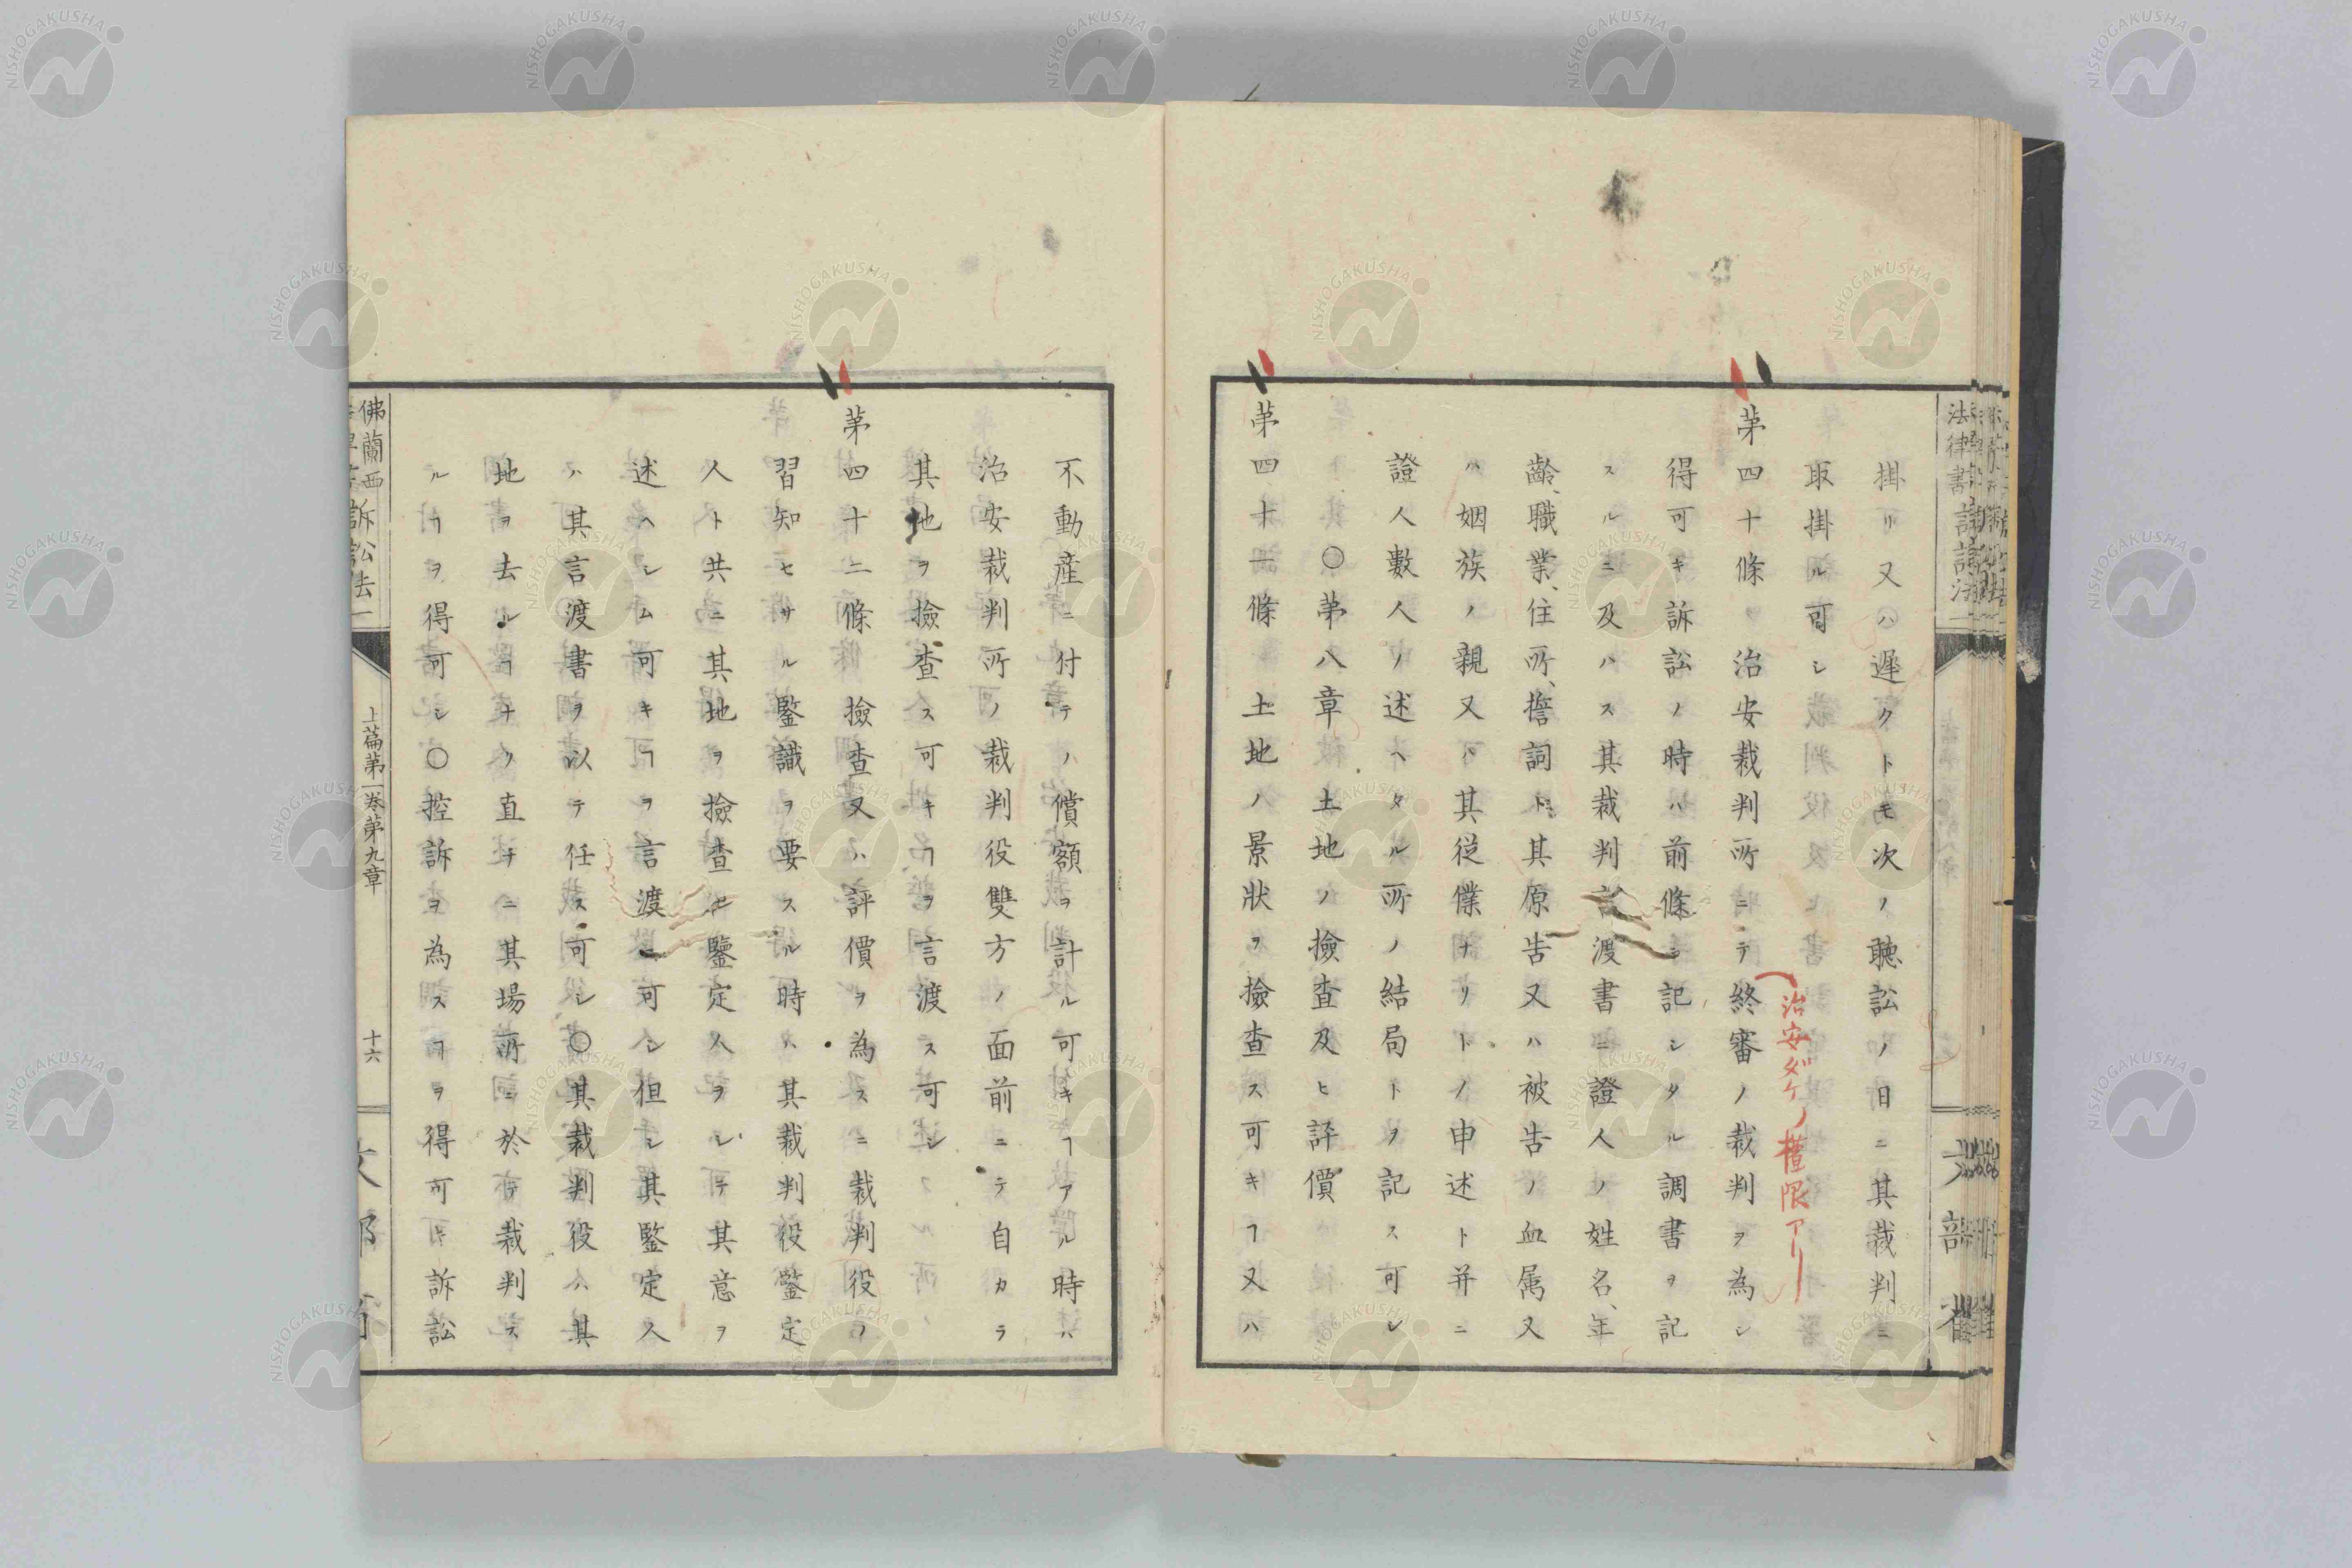 掛リ又ハ遲クトモ次ノ聽訟ノ日ニ其裁判ニ
取掛ル可シ
第四十條 治安裁判所ニテ終審ノ裁判ヲ為シ
治安ダケノ權限アリ
得可キ訴訟ノ時ハ前條ニ記シタル調書ヲ記
スルニ及ハス其裁判言渡書ニ證人ノ姓名、年
齡、職業、住所、擔詞ト其原告又ハ被告ノ血属又
ハ姻族ノ親又ハ其從僕ナリトノ申述ト并ニ
證人數人ノ述ヘタル所ノ結局トヲ記ス可シ
〇第八章 土地ノ撿査及ヒ評價
第四十一條 土地ノ景狀ヲ撿査ス可キヿ又ハ
不動產ニ付テノ償額ヲ計ル可キヿアル時ハ
治安裁判所ノ裁判役雙方ノ面前ニテ自カラ
其地ヲ撿査ス可キヿヲ言渡ス可シ
第四十二條 撿査又ハ評價ヲ為スニ裁判役ノ
習知セサル鑒識ヲ要スル時ハ其裁判役鑒定
人ト共ニ其地ヲ撿査シ鑒定人ヲシテ其意ヲ
述ヘシム可キヿヲ言渡ス可シ但シ其鑒定人
ハ其言渡書ヲ以テ任ス可シ〇其裁判役ハ其
地ヲ去ルヿナク直チニ其場所ニ於テ裁判ス
ルヿヲ得可シ〇控訴ヲ為スヿヲ得可キ訴訟
佛蘭西
訴訟法一
上篇第一卷第九章
十六
NISHOGAKUSHA